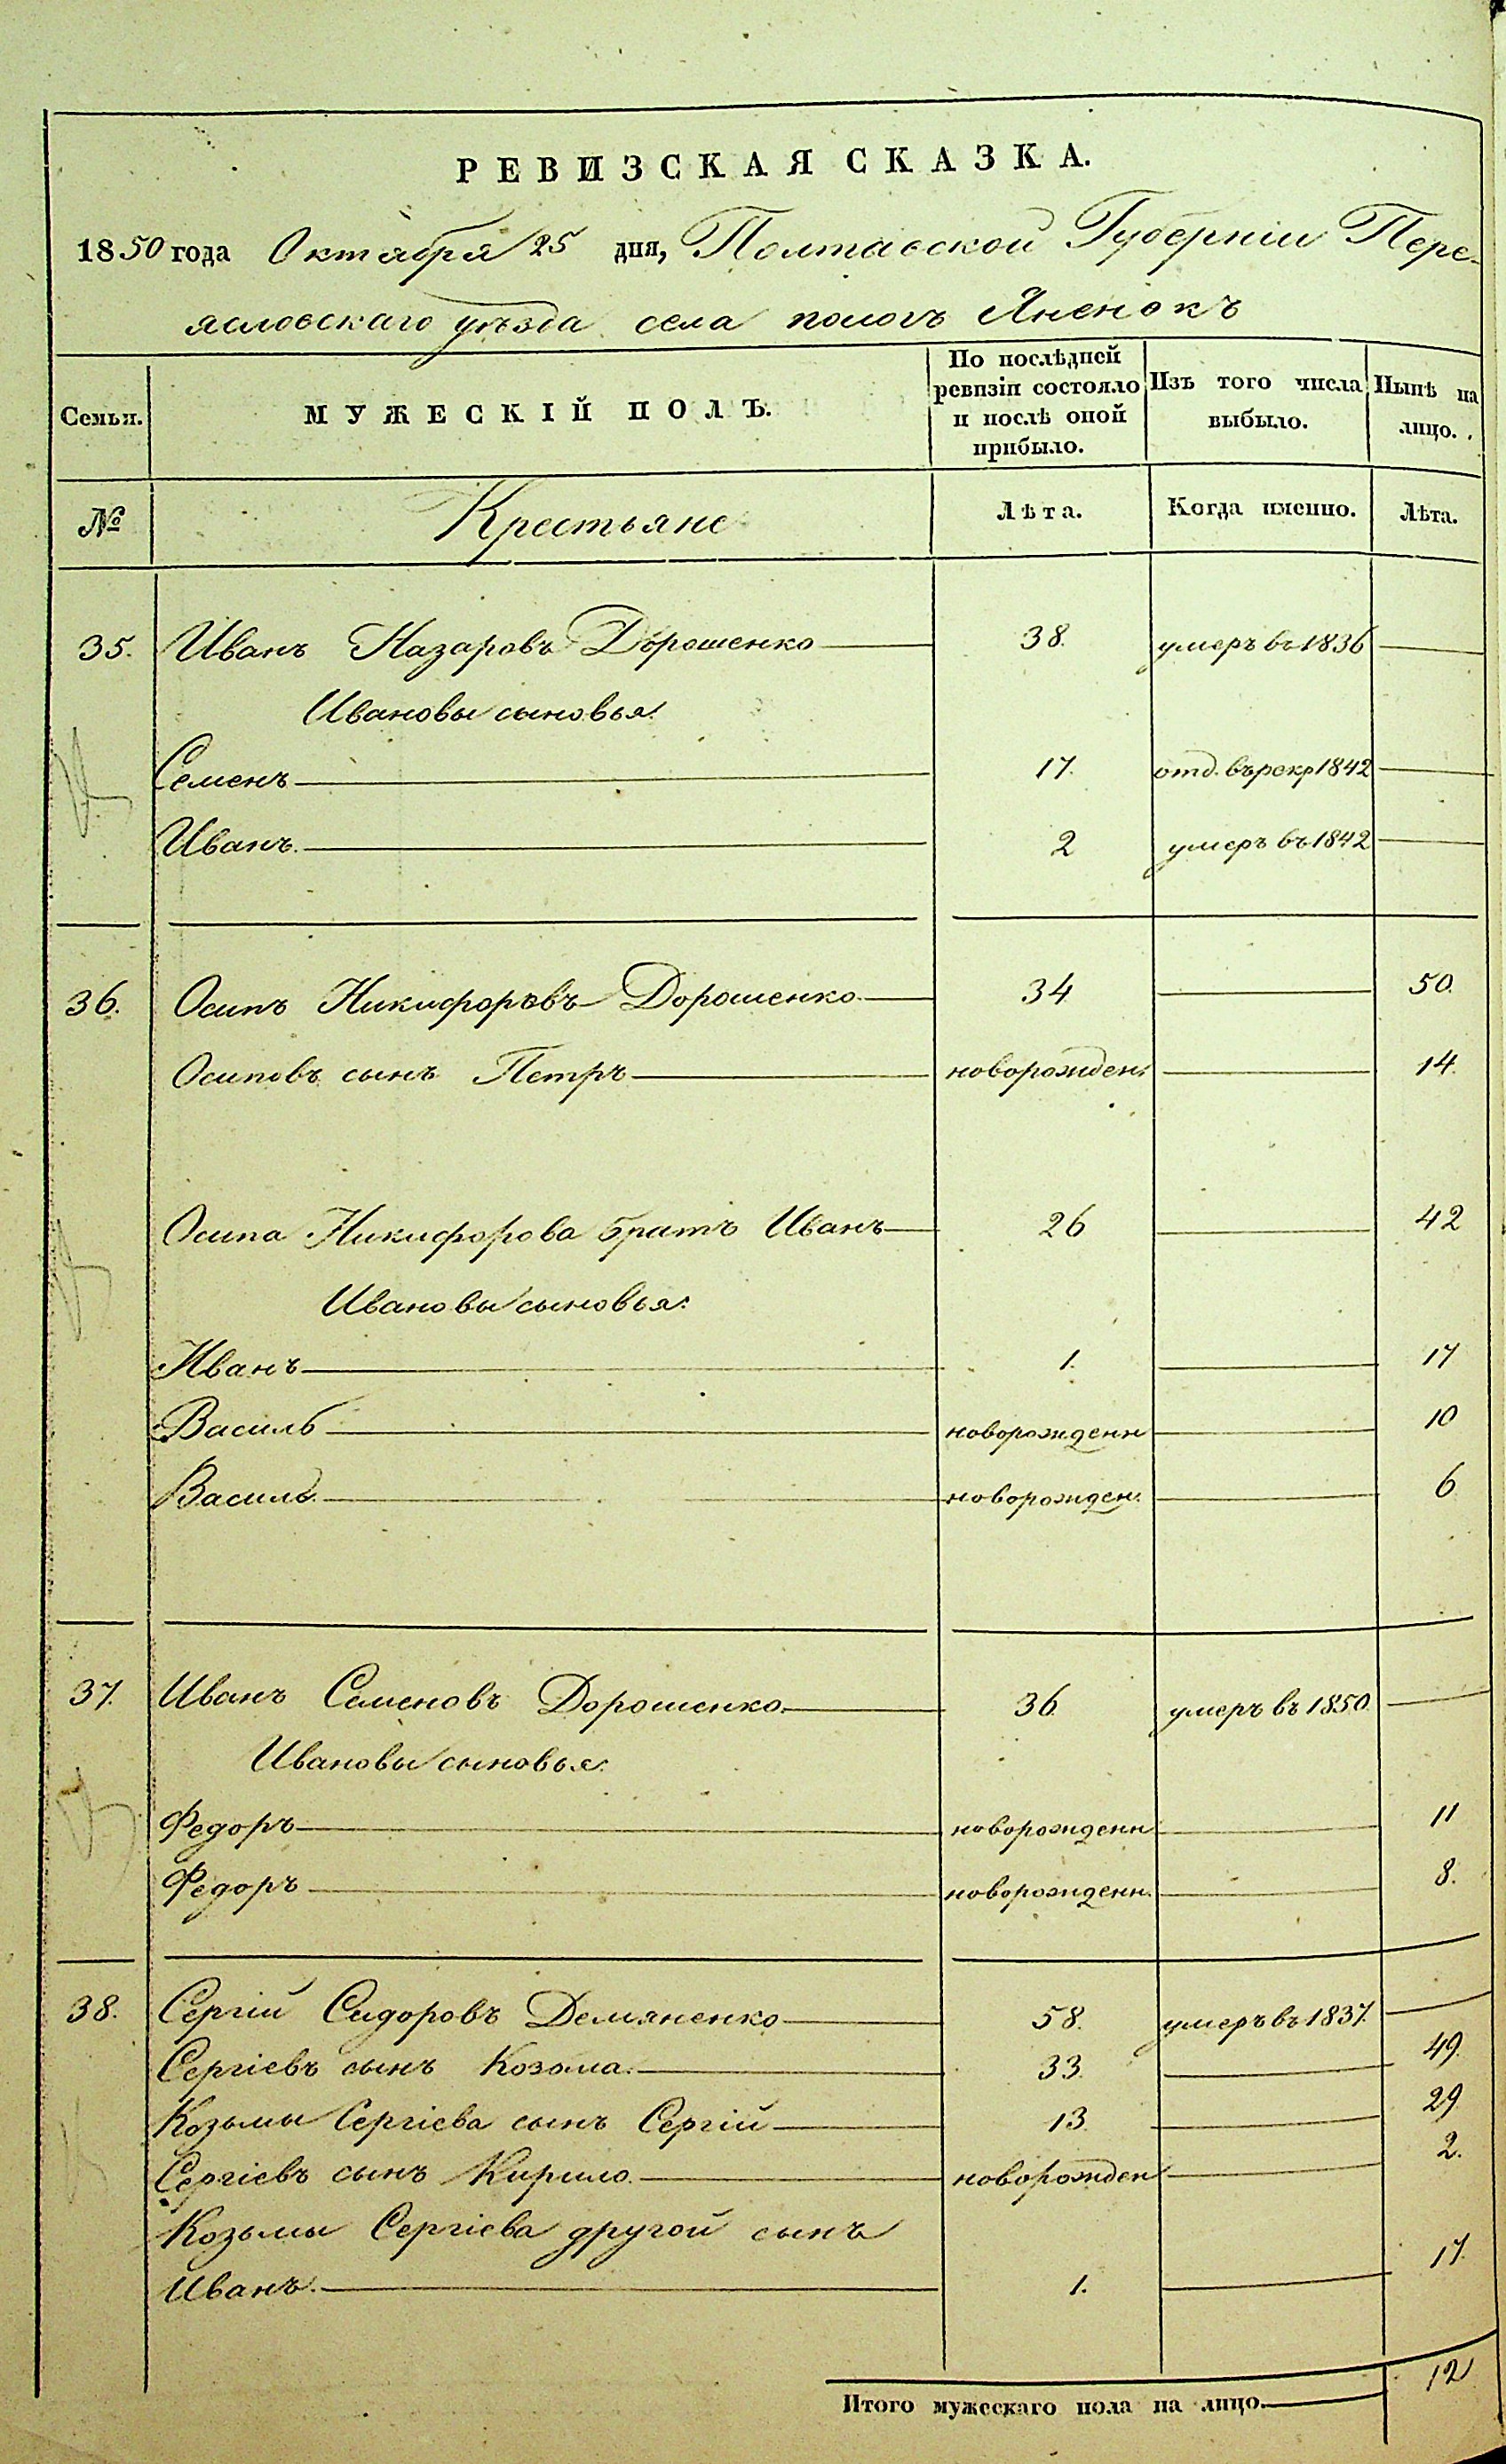 РЕВИЗСКАЯ СКАЗКА.
1850 года Октября 25 дня, Полтавской Губерніи Пере-
яславскаго уѣзда села пологъ Яненокъ
Семьи. МУЖЕСКІЙ ПОЛЪ. По послѣдней ревизіи состояло и послѣ оной прибыло. Изъ того числа выбыло. Нынѣ на лицо.
№ Крестьяне Лѣта. Когда именно. Лѣта.
35. Иванъ Назаровъ Дорошенко 38. умеръ въ 1836
Ивановы сыновья:
Семенъ 17. отд. въ рекр 1842
Иванъ. 2 умеръ въ 1842
36. Осипъ Никифоровъ Дорошенко 34 50.
Осиповъ сынъ Петръ новорожден. 14.
Осипа Никифорова братъ Иванъ 26 42
Ивановы сыновья:
Иванъ 1. 17
Василь новорожденн 10
Василь. новорожден. 6
37. Иванъ Семеновъ Дорошенко 36. умеръ въ 1850
Ивановы сыновья:
Федоръ новорожденн 11
Федоръ новорожденн. 8.
38. Сергій Сидоровъ Демяненко 58. умеръ въ 1837.
Сергіевъ сынъ Козьма. 33. 49.
Козьмы Сергіева сынъ Сергій 13. 29
Сергіевъ сынъ Кирило 2.
новорожден
Козьмы Сергіева другой сынъ
Иванъ. 1. 17.
Итого мужескаго пола на лицо. 12